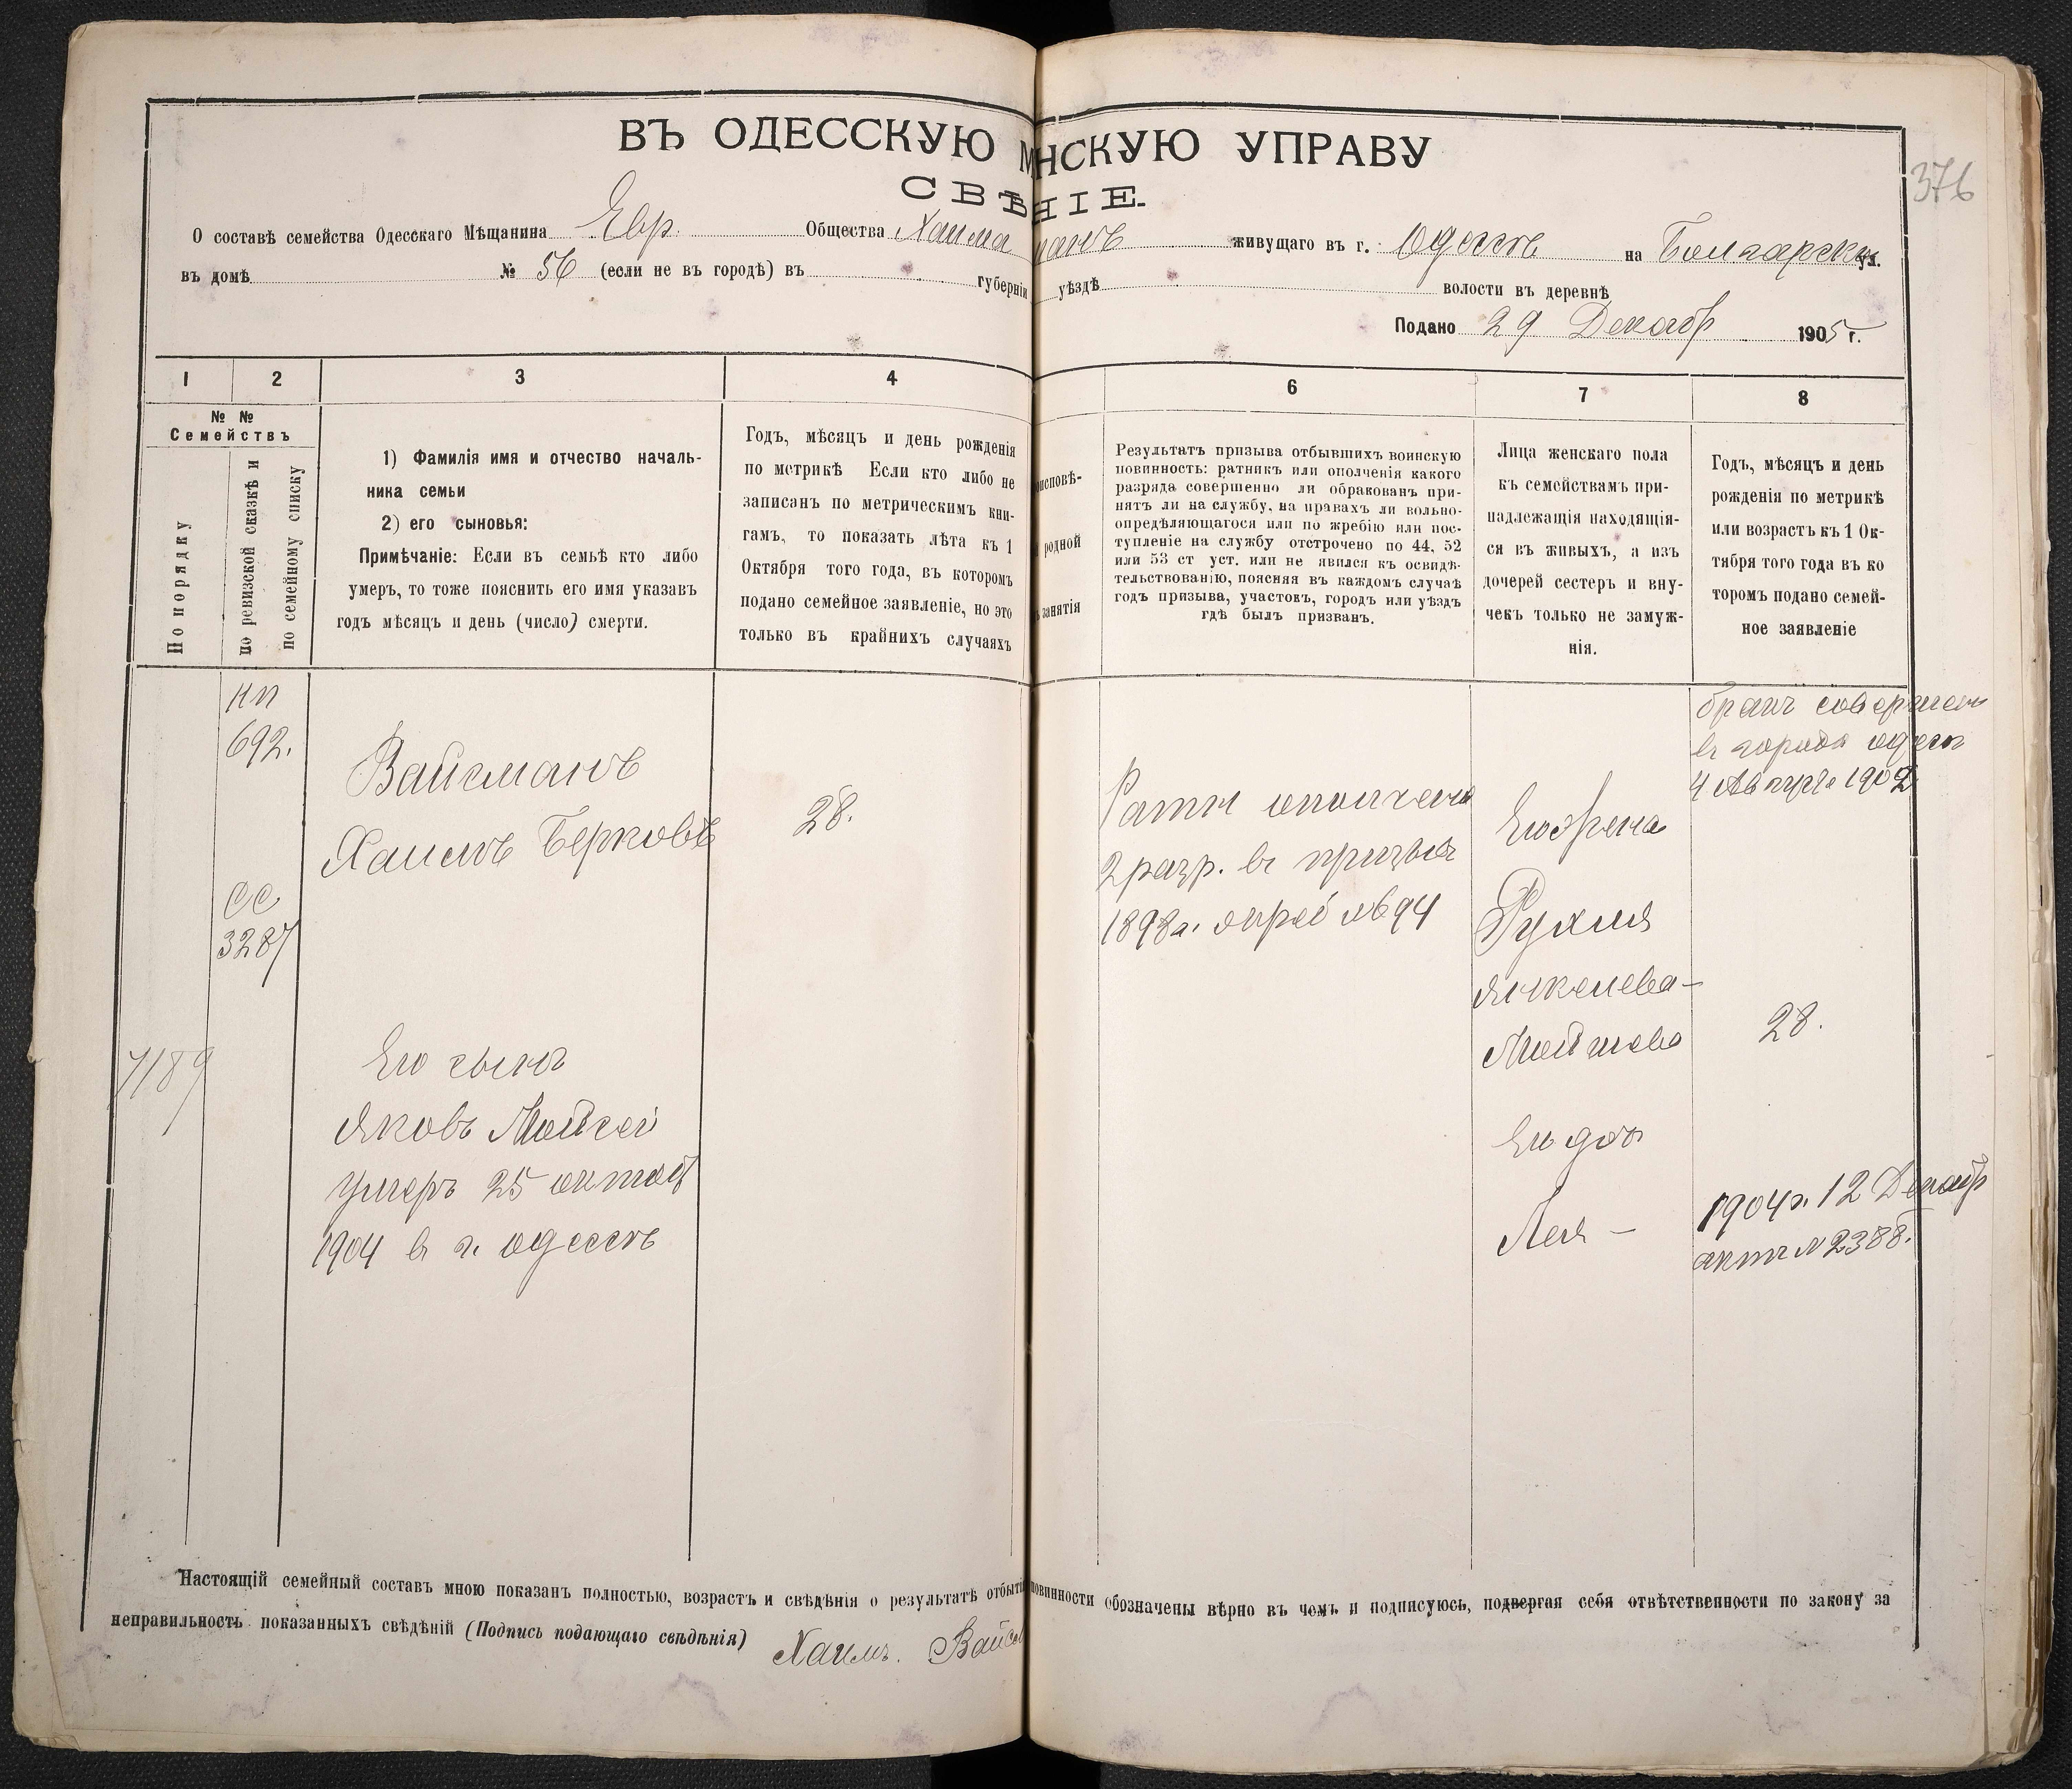 ВЪ ОДЕССКУЮ М НСКУЮ УПРАВУ
СВѢ НІЕ.
376
О составѣ семейства Одесскаго Мѣщанина Евр. Общества Хаима манъ живущаго въ г. Одессѣ на Болгарской ул.
въ домѣ № 56 (если не въ городѣ) въ губерніи уѣздѣ волости въ деревнѣ
Подано 29 Декабр 1905 г.
1 2 3 4 6 7 8
№ №
Семействъ
По порядку
по ревизской сказкѣ и
по семейному списку
1) Фамилія имя и отчество началь-
ника семьи
2) его сыновья:
Примѣчаніе: Если въ семьѣ кто либо
умеръ, то тоже пояснить его имя указавъ
годъ мѣсяцъ и день (число) смерти.
Годъ, мѣсяцъ и день рожденія
по метрикѣ Если кто либо не
записанъ по метрическимъ кни-
гамъ, то показать лѣта къ 1
Октября того года, въ которомъ
подано семейное заявленіе, но это
только въ крайнихъ случаяхъ
оисповѣ-
родной
занятія
Результатъ призыва отбывшихъ воинскую
повинность: ратникъ или ополченія какого
разряда совершенно ли обракованъ при-
нятъ ли на службу, на правахъ ли вольно-
опредѣляющагося или по жребію или пос-
тупленіе на службу отсрочено по 44, 52
или 53 ст уст. или не явился къ освидѣ-
тельствованію, поясняя въ каждомъ случаѣ
годъ призыва, участокъ, городъ или уѣздъ
гдѣ былъ призванъ.
Лица женскаго пола
къ семействамъ при-
надлежащія находящія-
ся въ живыхъ, а изъ
дочерей сестеръ и вну-
чекъ только не замуж-
нія.
Годъ, мѣсяцъ и день
рожденія по метрикѣ
или возрастъ къ 1 Ок-
тября того года въ ко
торомъ подано семей-
ное заявленіе
кп
692.
Вайсманъ
Хаимъ Берковъ
28.
СС
3287
7189
Его сынъ
Яковъ Мойсей
умеръ 25 октяб
1904 в г. Одессѣ
Ратн ополчена
2 разр. в призыв
1898г. №694
Его жена
Рухля
Янкелева-
Мойшева
28.
Его доч
Лея -
бракъ совершен
в городѣ Одесѣ
4 Августа 1902
1904г. 12 Декабр
актъ N 2388.
Настоящій семейный составъ мною показанъ полностью, возрастъ и свѣдѣнія о результатѣ отбыті повинности обозначены вѣрно въ чемъ и подписуюсь, подвергая себя отвѣтственности по закону за
неправильность показанныхъ свѣдѣній (Подпись подающаго свѣдѣнія) Хаимъ. Вайсм